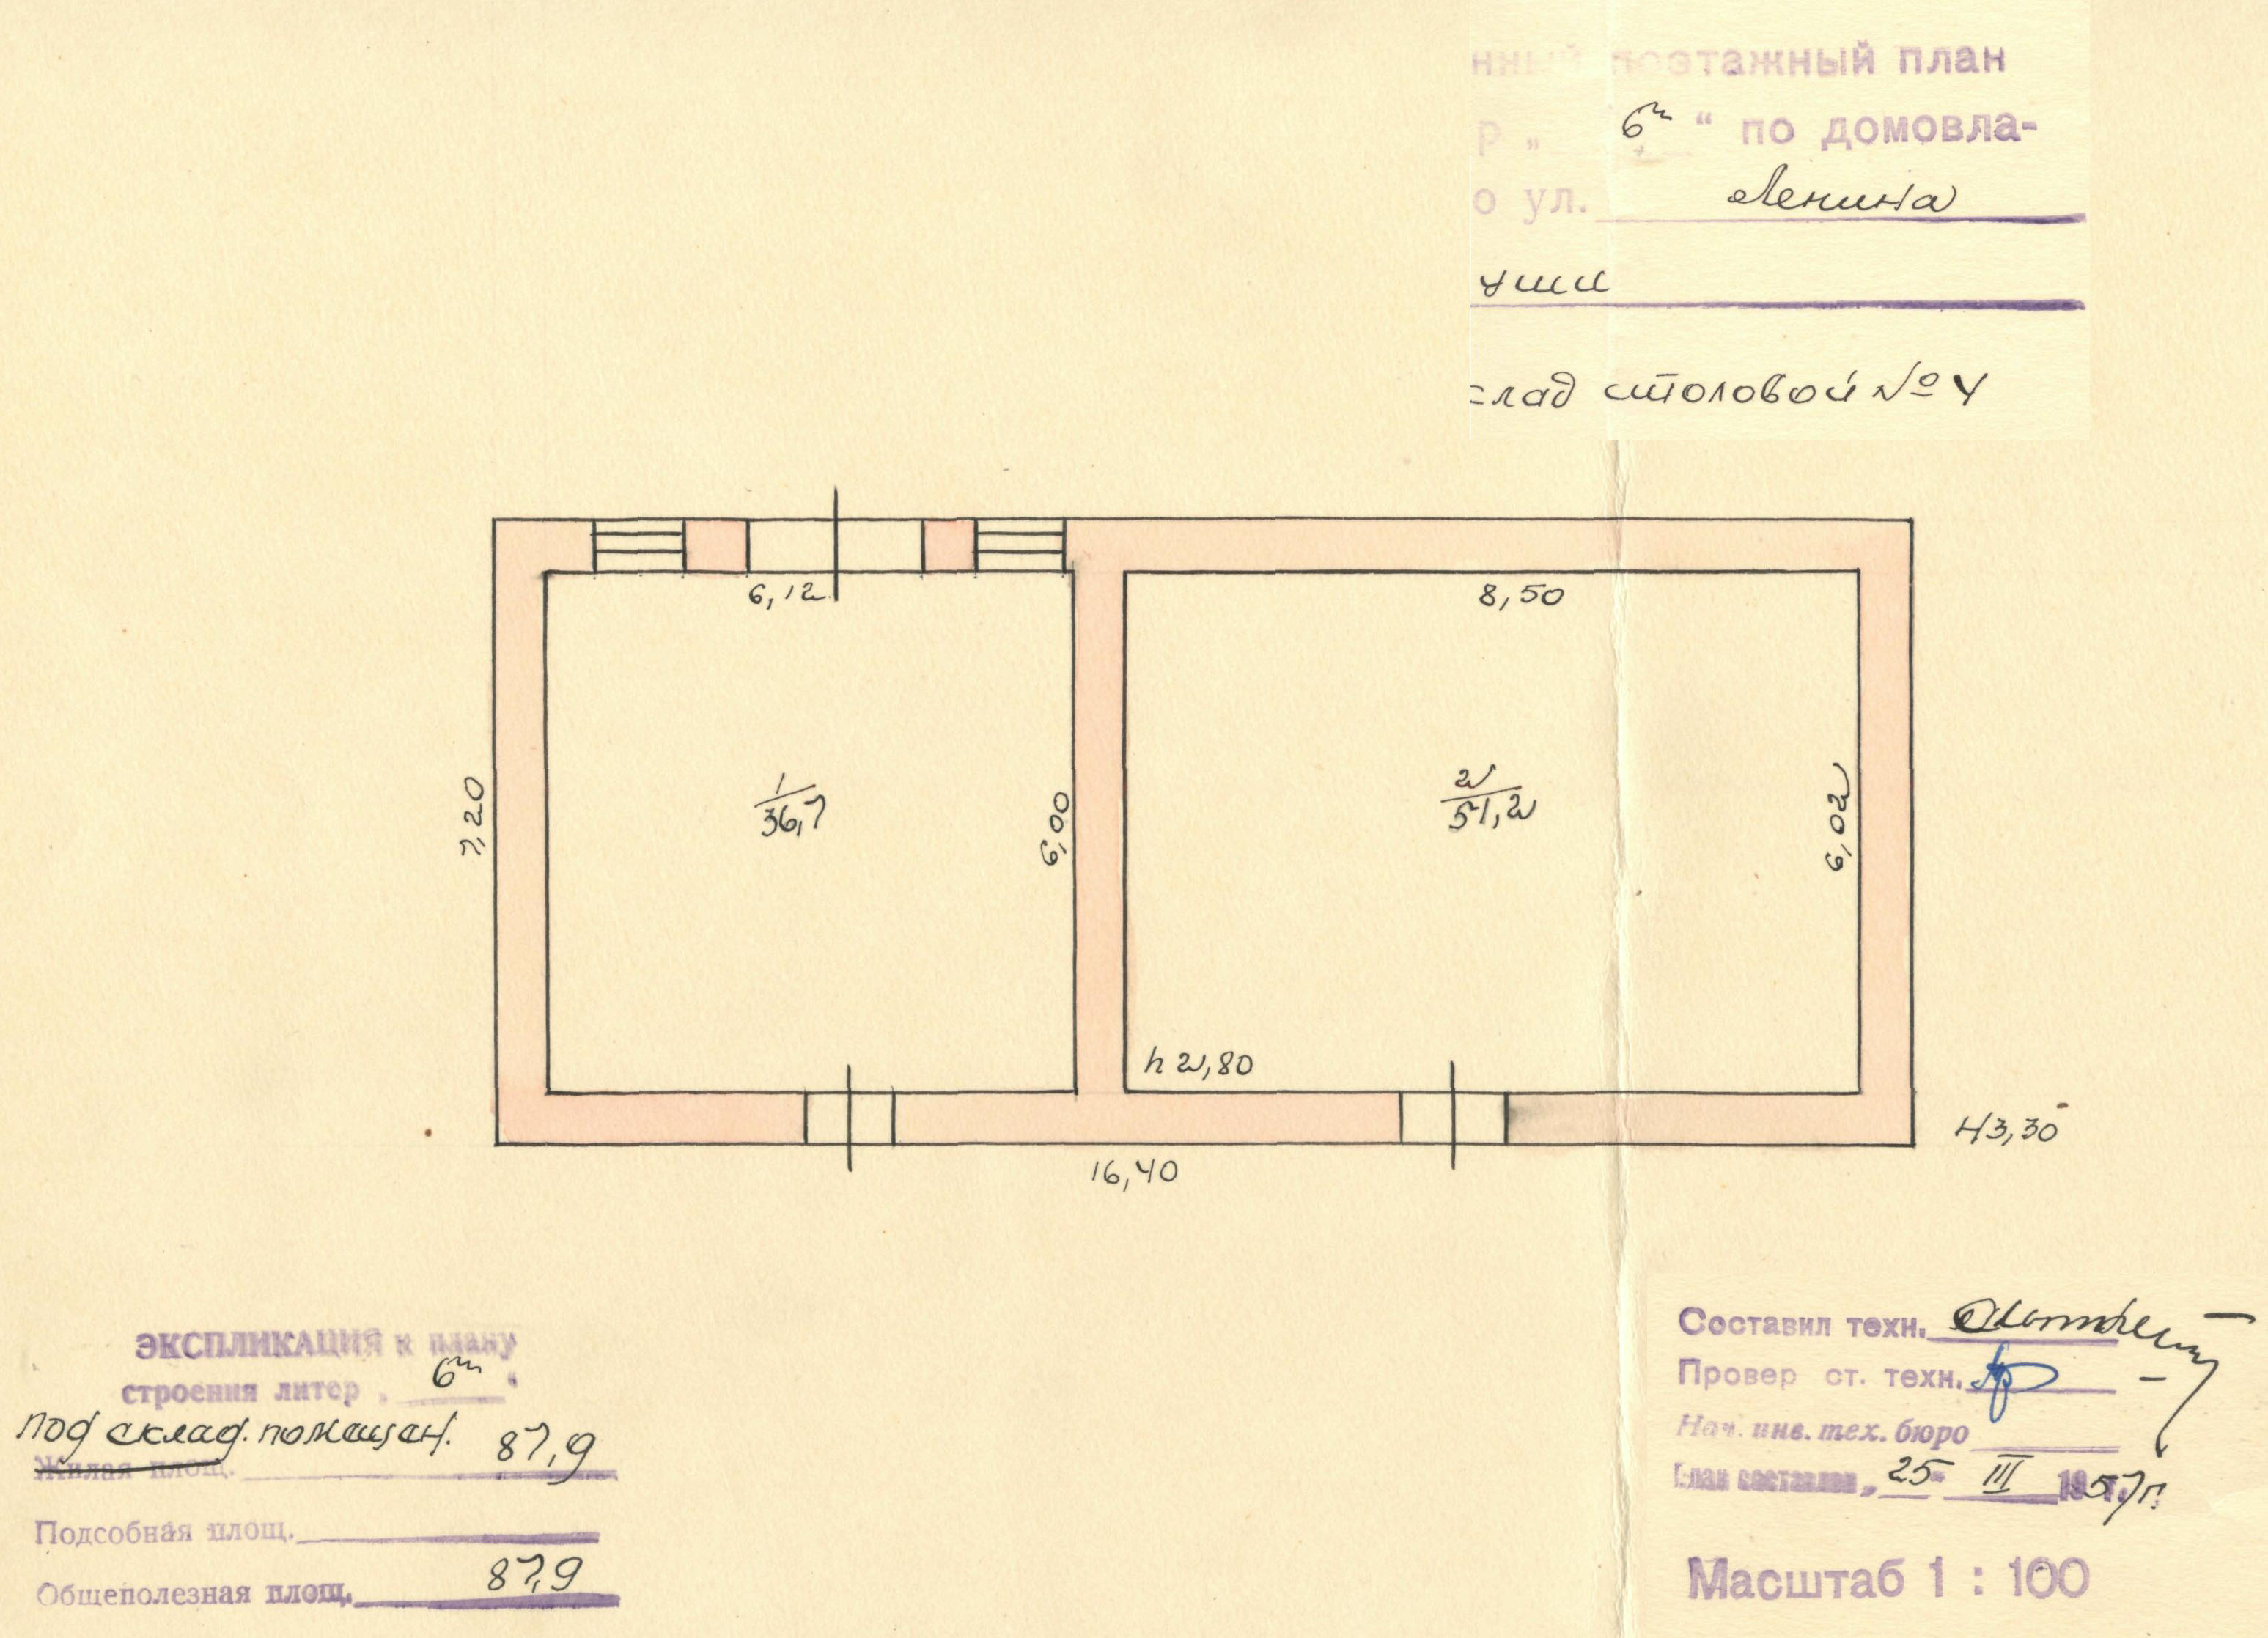 нный поэтажный план
р „ 6т “ по домовла-
о ул. Ленина
уши
склад столовой № 4
6,12
8,50
7,20
1
36,7
6,00
2
51,2
6,02
h 2,80
H 3,30
16,40
ЭКСПЛИКАЦИЯ к плану
строения литер „ 6т “
под склад. помещен. 87,9
Жилая площ.
Подсобная площ.
Общеполезная площ. 87,9
Составил техн.
Провер ст. техн.
Нач. инв. тех. бюро
План составлен „ 25 III 1957г.
Масштаб 1 : 100